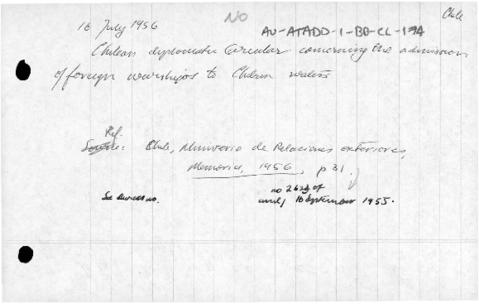 Chile
NO
16 July 1956
AU-ATADD-1-BO-CL-194
Chilean diplomatic Circular concerning the admission
of foreign warships to Chilean waters
Ref.
Source: Chile, Ministerio de Relaciones exteriores,
Memoria, 1956, p 31.
no 26 of
See
and, 16 September 1955.